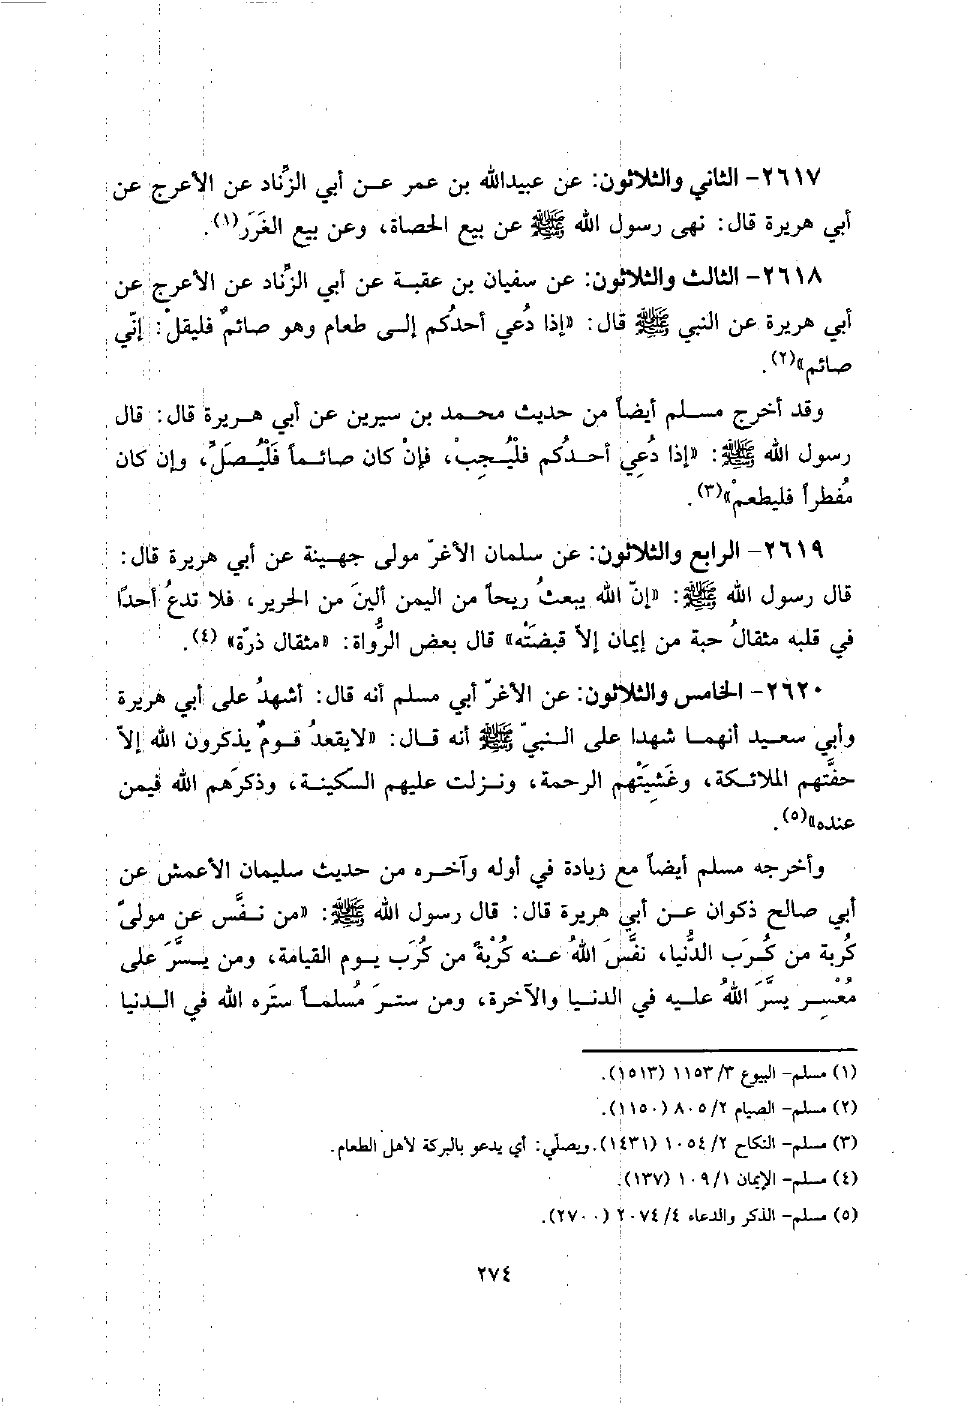 ٢٦١٧- الثاني والثلاثون: عن عبيدالله بن عمر عـن أبي الزِّناد عن الأعرج عن
أبي هريرة قال: نهى رسول الله ﷺ عن بيع الحصاة، وعن بيع الغَرَر(١).
٢٦١٨- الثالث والثلاثون: عن سفيان بن عقبـة عن أبي الزِّناد عن الأعرج عن
أبي هريرة عن النبي ﷺ قال: «إذا دُعي أحدُكم إلـى طعام وهو صائمٌ فليقلْ: إنّي
صائم»(٢).
وقد أخرج مسـلم أيضاً من حديث محمـد بن سيرين عن أبي هـريرة قال: قال
رسول الله ﷺ: «إذا دُعِي أحـدُكم فلْيُـجِبْ، فإنْ كان صائـماً فَلْيُـصَلِّ، وإن كان
مُفطراً فليطعمْ»(٣).
٢٦١٩- الرابع والثلاثون: عن سلمان الأغرّ مولى جهـينة عن أبي هريرة قال:
قال رسول الله ﷺ: «إنّ الله يبعثُ ريحاً من اليمن ألينَ من الحرير، فلا تدعُ أحدًا
في قلبه مثقالُ حبة من إيمان إلاّ قبضَتْه» قال بعض الرُّواة: «مثقال ذرّة» (٤).
٢٦٢٠- الخامس والثلاثون: عن الأغرّ أبي مسلم أنه قال: أشهدُ على أبي هريرة
وأبي سعيد أنهمـا شهدا على النـبيّ ﷺ أنه قـال: «لايقعدُ قـومٌ يذكرون الله إلاّ
حفَّتهم الملائـكة، وغَشِيَتْهم الرحمة، ونـزلت عليهم السّكينـة، وذكرَهم الله فيمن
عنده»(٥).
وأخرجه مسلم أيضاً مع زيادة في أوله وآخـره من حديث سليمان الأعمش عن
أبي صالح ذكوان عـن أبي هريرة قال: قال رسول الله ﷺ: «من نـفَّس عن مولىً
كُربة من كُـرَب الدُّنيا، نفَّسَ اللهُ عـنه كُرْبةً من كُرَب يـوم القيامة، ومن يـسَّرَ على
مُعْسِـر يسَّرَ اللهُ علـيه في الدنـيا والآخرة، ومن ستـرَ مُسلمـاً ستَره الله في الـدنيا
(١) مسلم- البيوع ٣/ ١١٥٣ (١٥١٣).
(٢) مسلم- الصيام ٢/ ٨٠٥ (١١٥٠).
(٣) مسلم- النكاح ٢/ ١٠٥٤ (١٤٣١). ويصلّي: أي يدعو بالبركة لأهل الطعام.
(٤) مسلم- الإيمان ١/ ١٠٩ (١٣٧).
(٥) مسلم- الذكر والدعاء ٤/ ٢٠٧٤ (٢٧٠٠).
٢٧٤